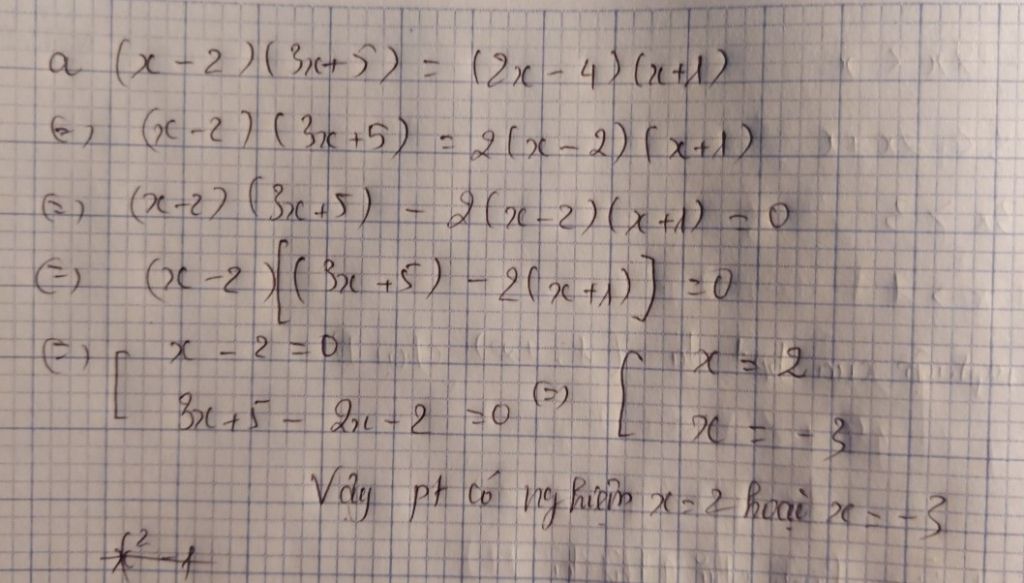 a (x - 2)(3x+5) = (2x - 4)(x+1)
(=) (x-2)(3x+5) = 2(x-2)(x+1)
(=) (x-2)(3x+5) - 2(x-2)(x+1) = 0
(=) (x-2)[(3x+5) - 2(x+1)] = 0
(=) [ x - 2 = 0
3x+5 - 2x - 2 = 0 (=) [ x = 2
x = -3
Vậy pt có nghiệm x=2 hoặc x = -3
x² - 1